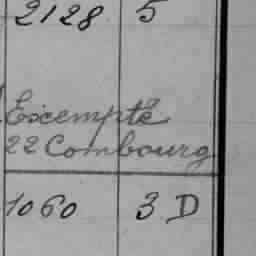 2128 5
Exempté
22 Combourg
1060 3 D